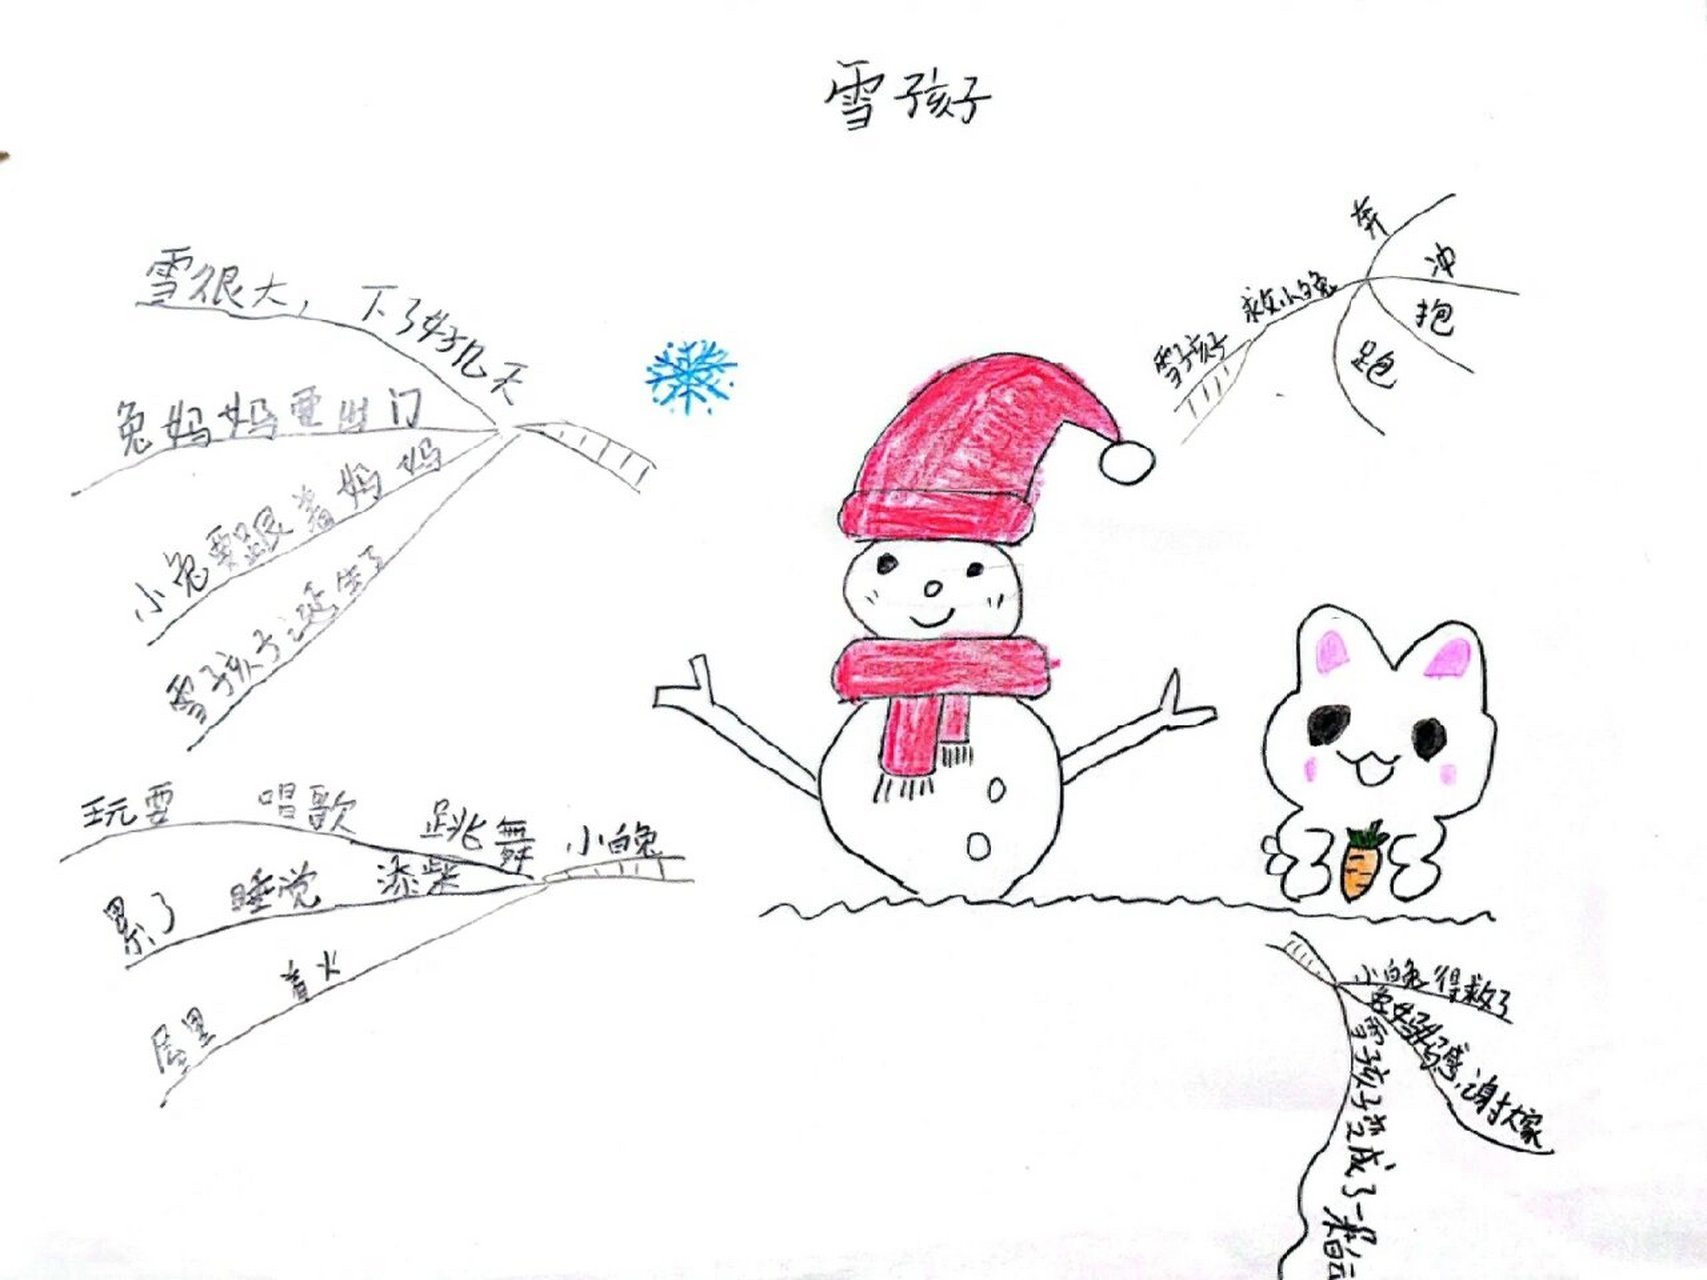 雪孩子
雪很大，下了好几天
兔妈妈要出门
小兔要跟着妈妈
雪孩子诞生了
雪孩子
救小白兔
奔
冲
抱
跑
小白兔
玩耍 唱歌 跳舞
累了 睡觉 添柴
屋里 着火
小白兔得救了
兔妈妈感谢大家
雪孩子变成了一朵白云